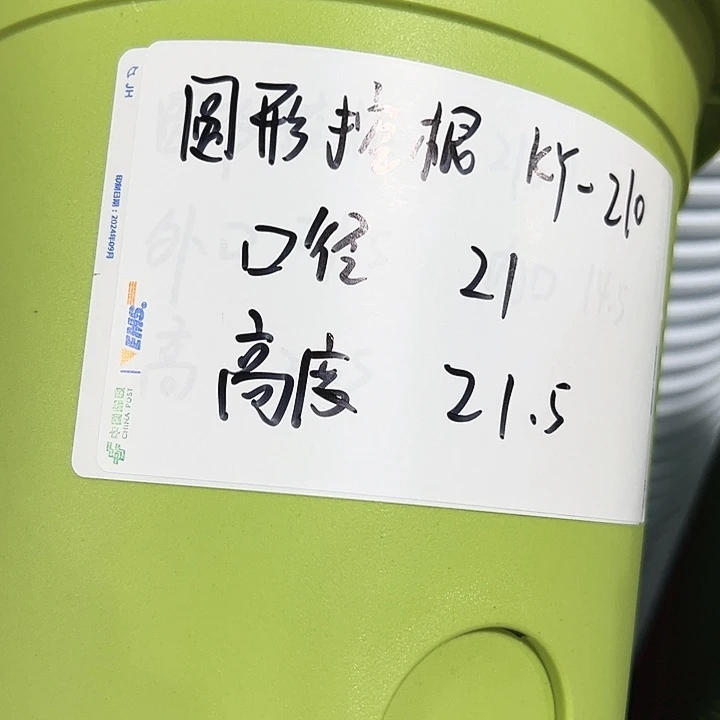 圆形控根 KY-210
口径 21
高度 21.5
JH
印制日期：2024年09月
EMS
中国邮政
CHINA POST